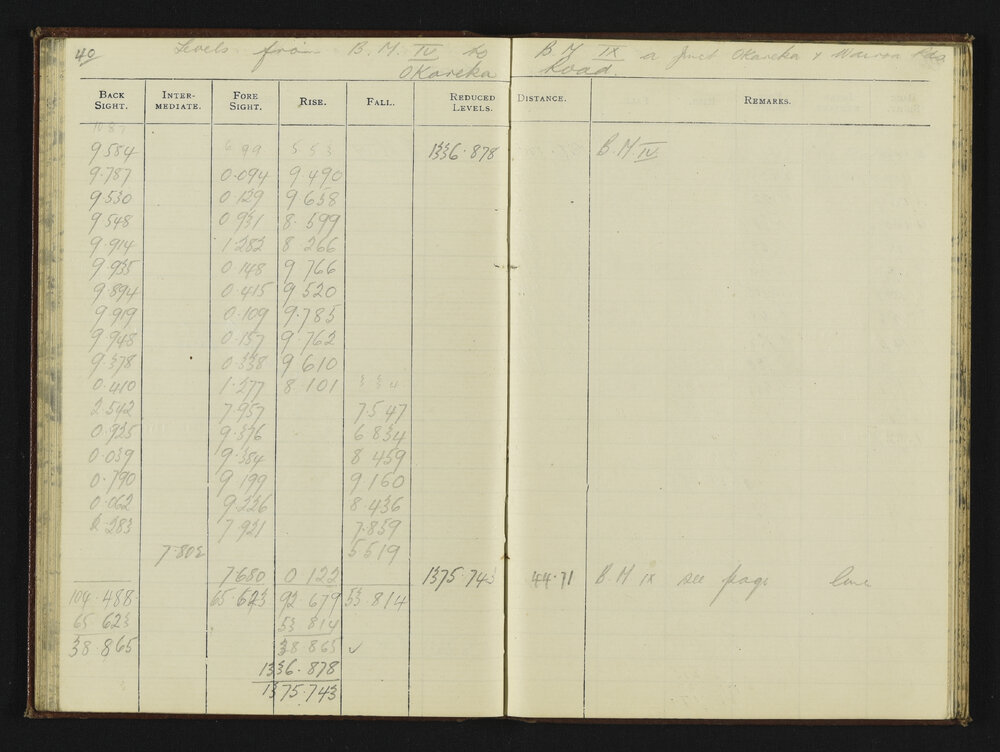 40 Levels from B.M. IV to B.M IX a Junct Okareka & Wairoa Rds
Okareka Road.
BACK SIGHT. INTER-MEDIATE. FORE SIGHT. RISE. FALL. REDUCED LEVELS. DISTANCE. REMARKS.
9.584 6 99 5 53 1336.878 B.M. IV
9.787 0.094 9 490
9.530 0.129 9 658
9.548 0.931 8.599
9.914 1.282 8 266
9.935 0.148 9 766
9.894 0.415 9 520
9.919 0.109 9.785
9.948 0.157 9.762
9.378 0.338 9 610
0.410 1.277 8 101
2.542 7.957 7.547
0.925 9.376 6 834
0.039 9.384 8 459
0.790 9.199 9.160
0.062 9.226 8.436
2.283 7.921 7.859
7.802 5519
7.680 0 122 1375.743 44.71 B.M IX see page
104.488 65.623 92.679 53.814
65.623 53 814
38.865 38 865 ✓
1336.878
1375.743